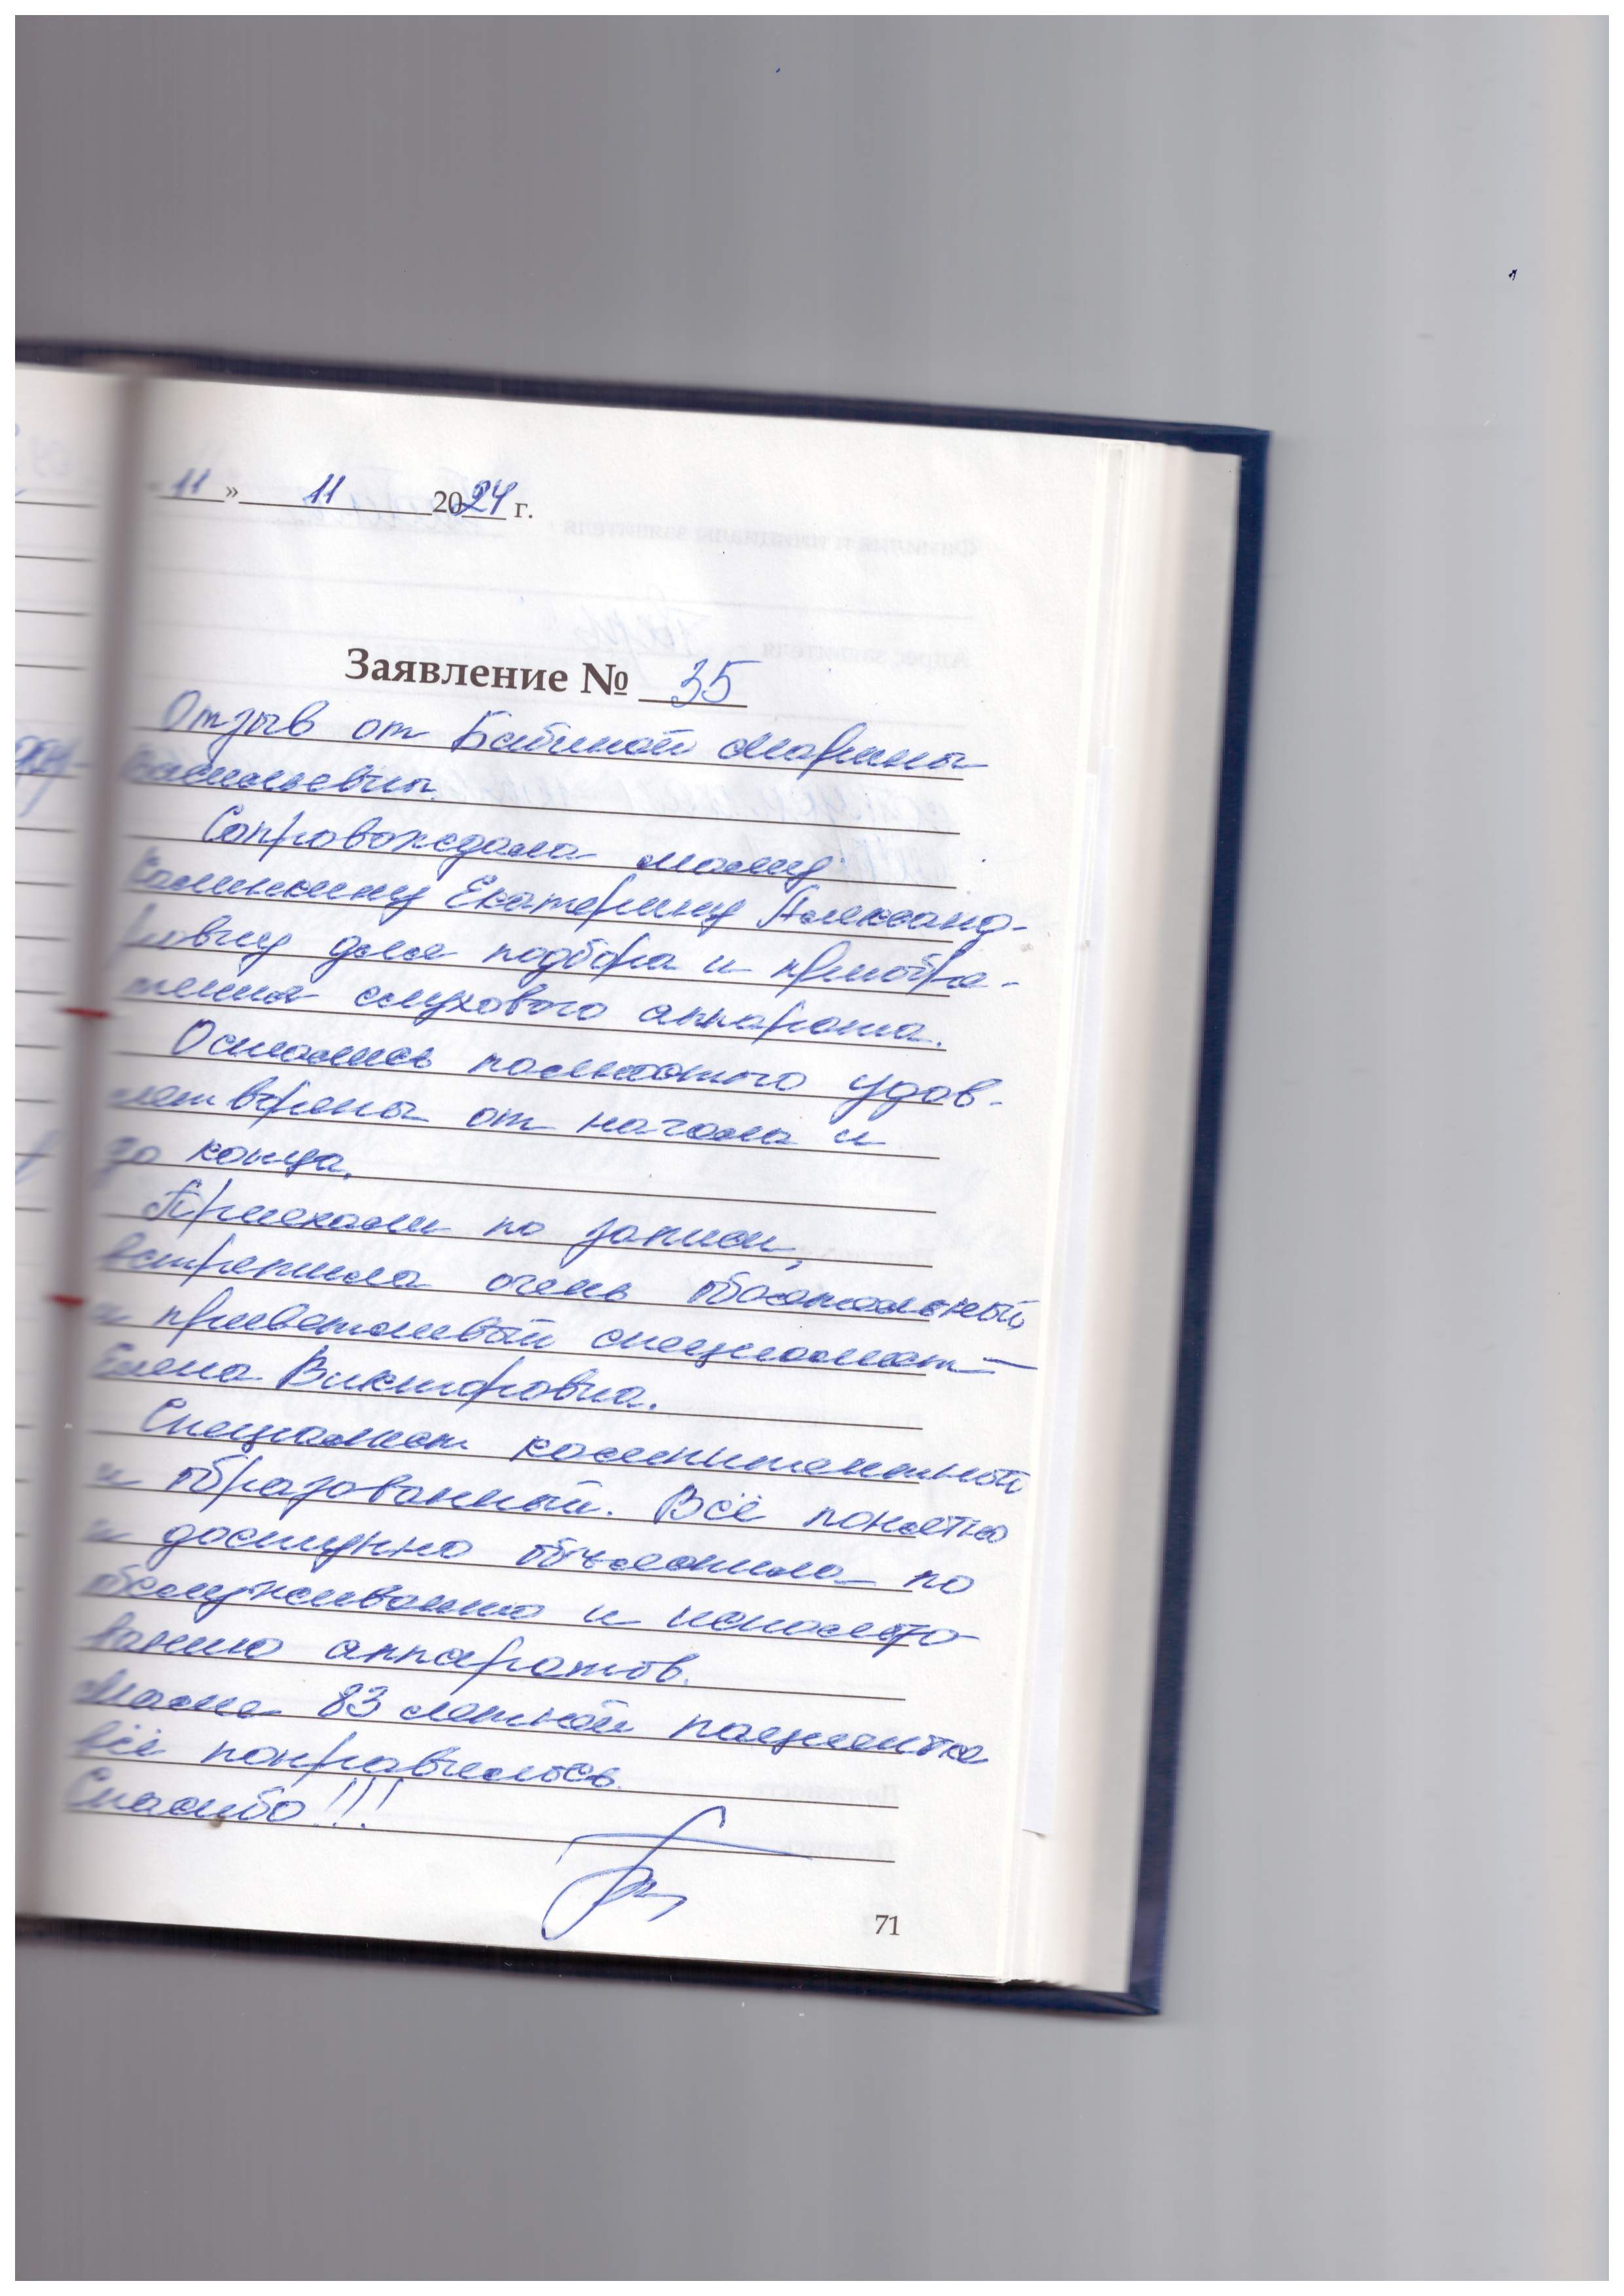 «11» 11 2024 г.
Заявление № 35
Отзыв от Бабиной Марины
Васильевны.
Сопровождала маму
Калинкину Екатерину Александ-
ровну для подбора и приобре-
тения слухового аппарата.
Остались полностью удов-
летворены от начала и
до конца.
Приехали по записи,
встретила очень обаятельный
и приветливый специалист –
Елена Викторовна.
Специалист компитентный
и образованный. Всё понятно
и доступно объяснила по
обслуживанию и использо-
ванию аппаратов.
Маме 83 летней пациентке
всё понравилось.
Спасибо!!!
71